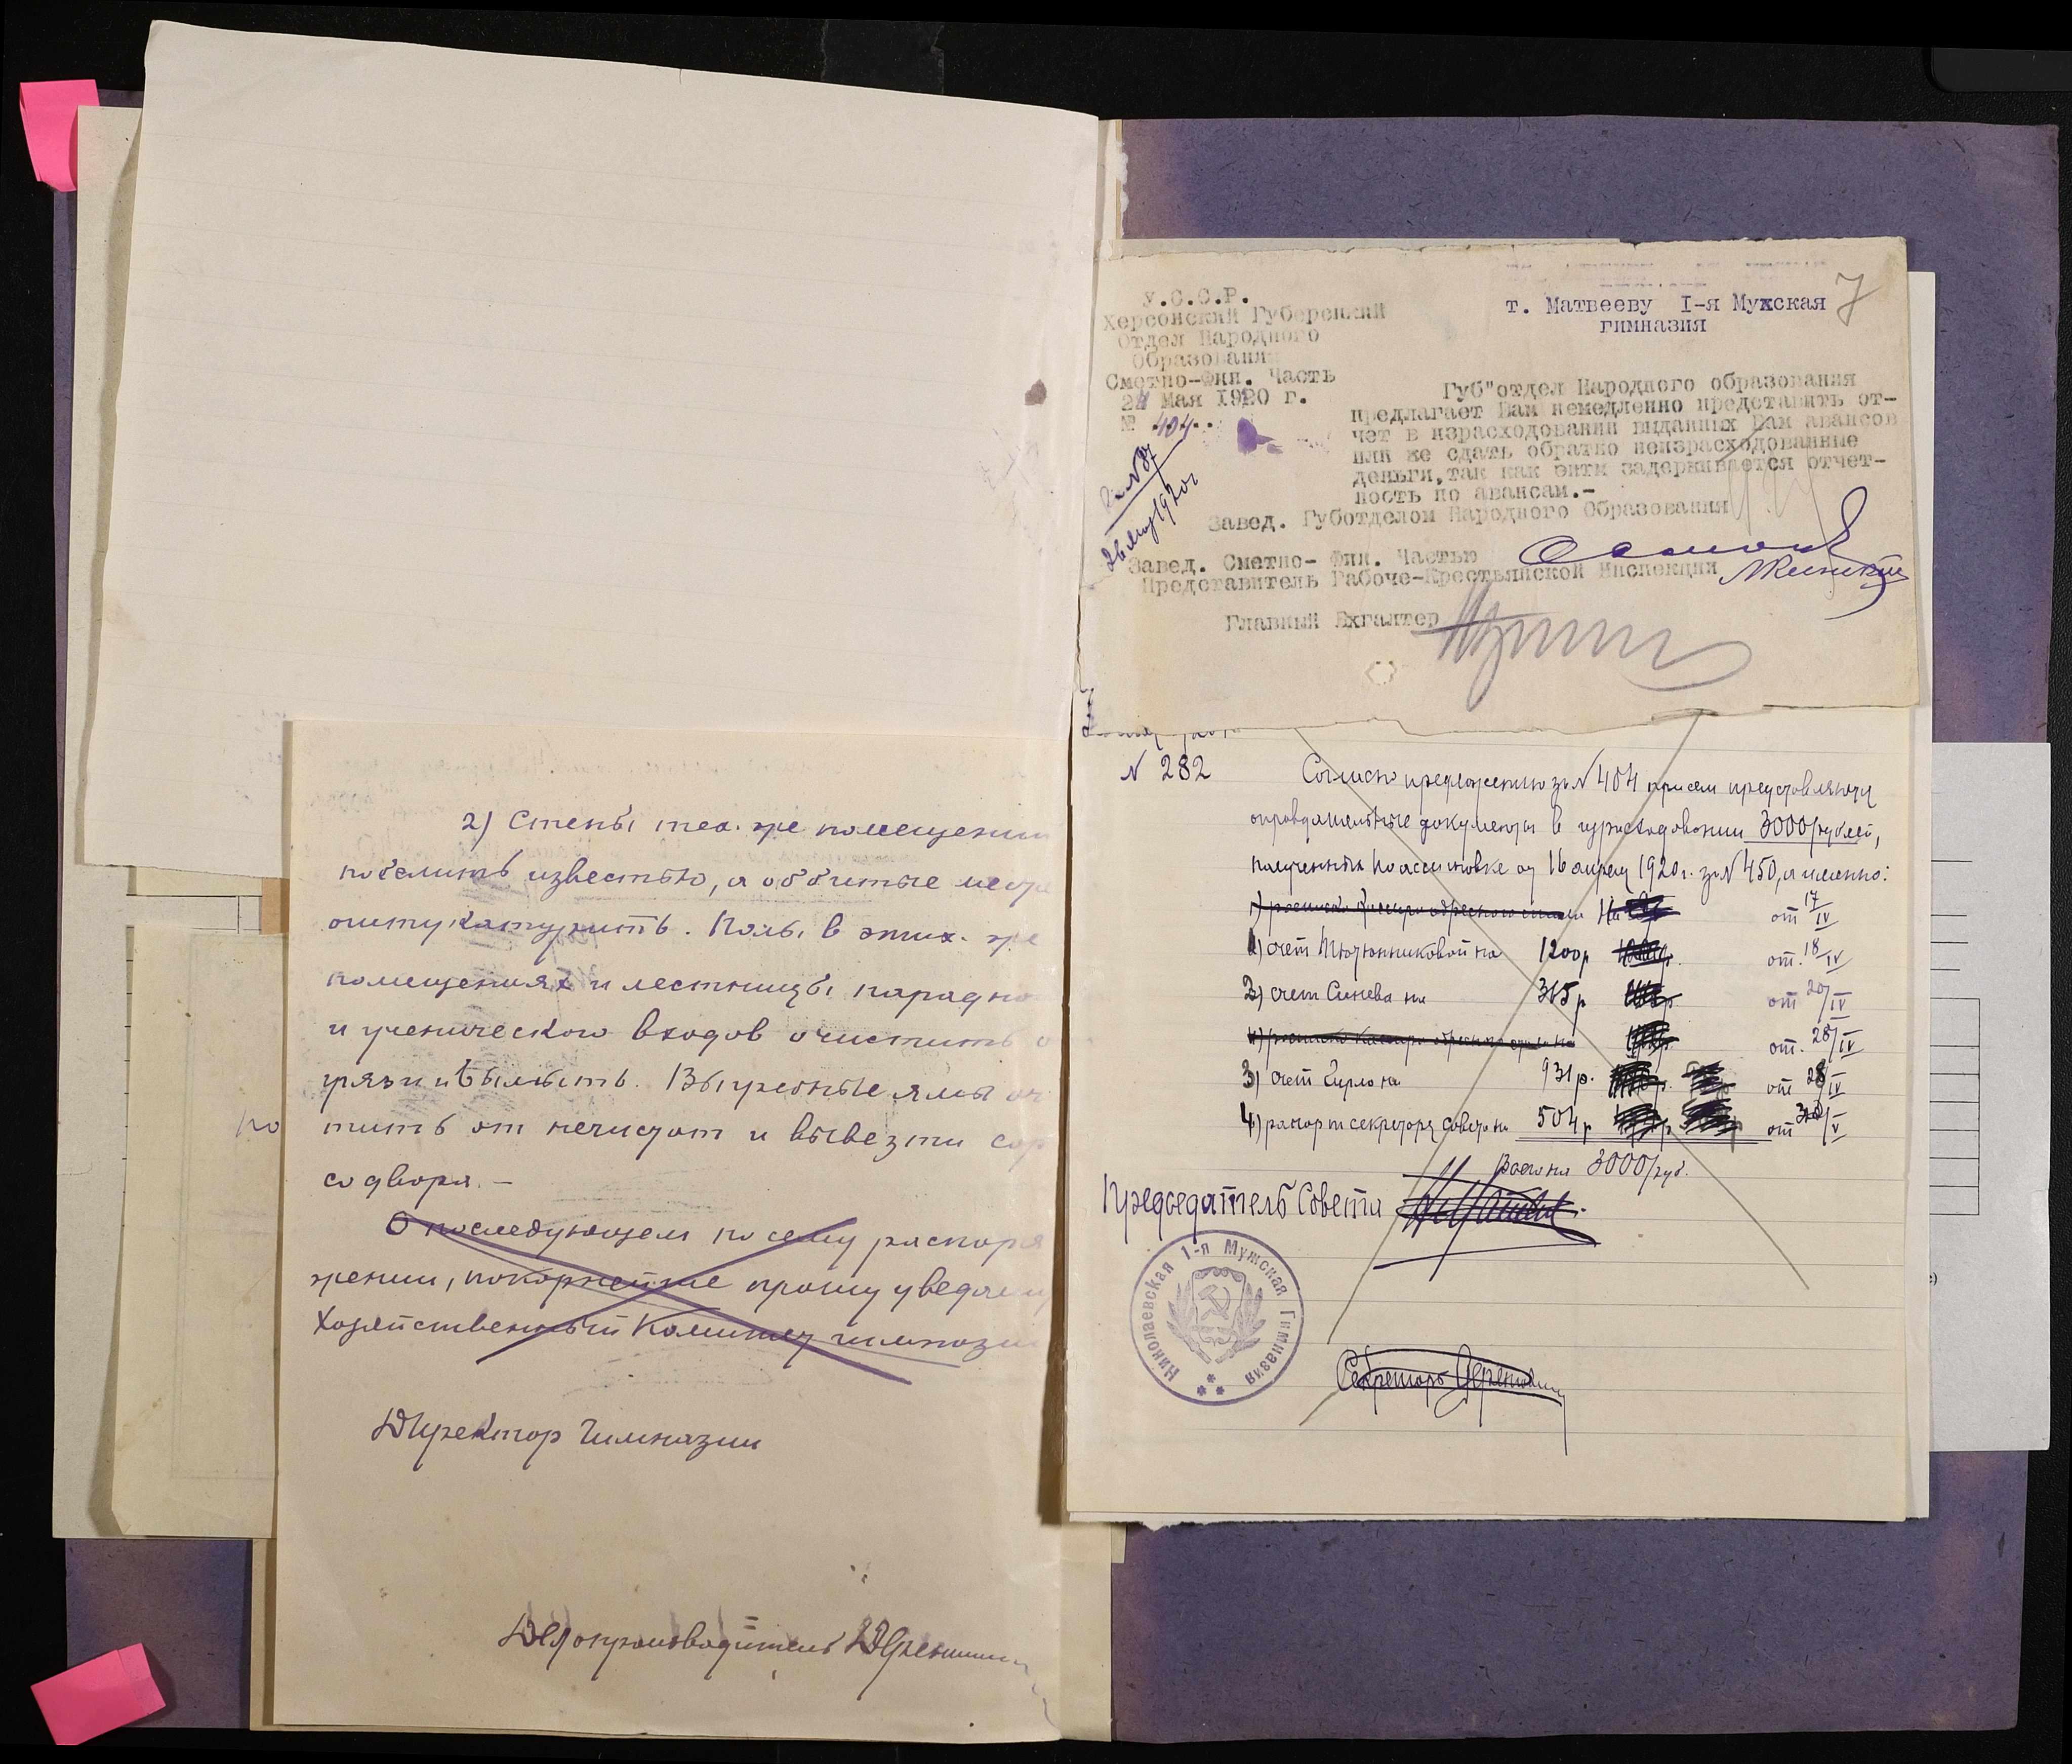 2) Стены тех. же помещении
побелить известью, а оббитые места
оштукатурить. Полы в этих. же
помещениях и лестницы парадно
и ученического входов очистить о
грязи и вымыть. Выгребные ямы оч
тить от нечистот и вывезти сор
со двора. –
О последующем по сему распоря
жении, покорнейше прошу уведоми
Хозяйственный Комитет гимнази
Директор Гимназии
Делопроизводитель
по
7
У.С.С.Р.
Херсонский Губернский
Отдел Народного
Образования
Сметно-Фин. Часть
24 Мая 1920 г.
№ 404..
Вх. № 87
26 мая 1920г
т. Матвееву I-я Мужская
гимназия
Губ"отдел Народного образования
предлагает Вам немедленно представить от-
чет в израсходовании выданных Вам авансов
или же сдать обратно неизрасходованные
деньги, так как этим задерживается отчет-
ность по авансам.-
Завед. Губотделом Народного Образования
Завед. Сметно- Фин. Частью
Представитель Рабоче-Крестьянской Инспекции
Главный Бхгалтер
N 282
Согласно предложению за N 404 при сем представляются
оправдательные документы в израсходовании 3000 рублей,
полученных по ассигновке от 16 апреля 1920 г. за N 450, а именно:
от 17/IV
1) счет Тютюнниковой на 1200 р от. 18/IV
2) счет Синева на 365 р от 20/IV
от. 28/IV
3) счет Гирло на 931 р. от 28/IV
4) рапорт секретаря совета на 504 р от /V
Всего на 3000 руб.
Председатель Совета
Николаевская 1-я Мужская Гимназия
Секретарь